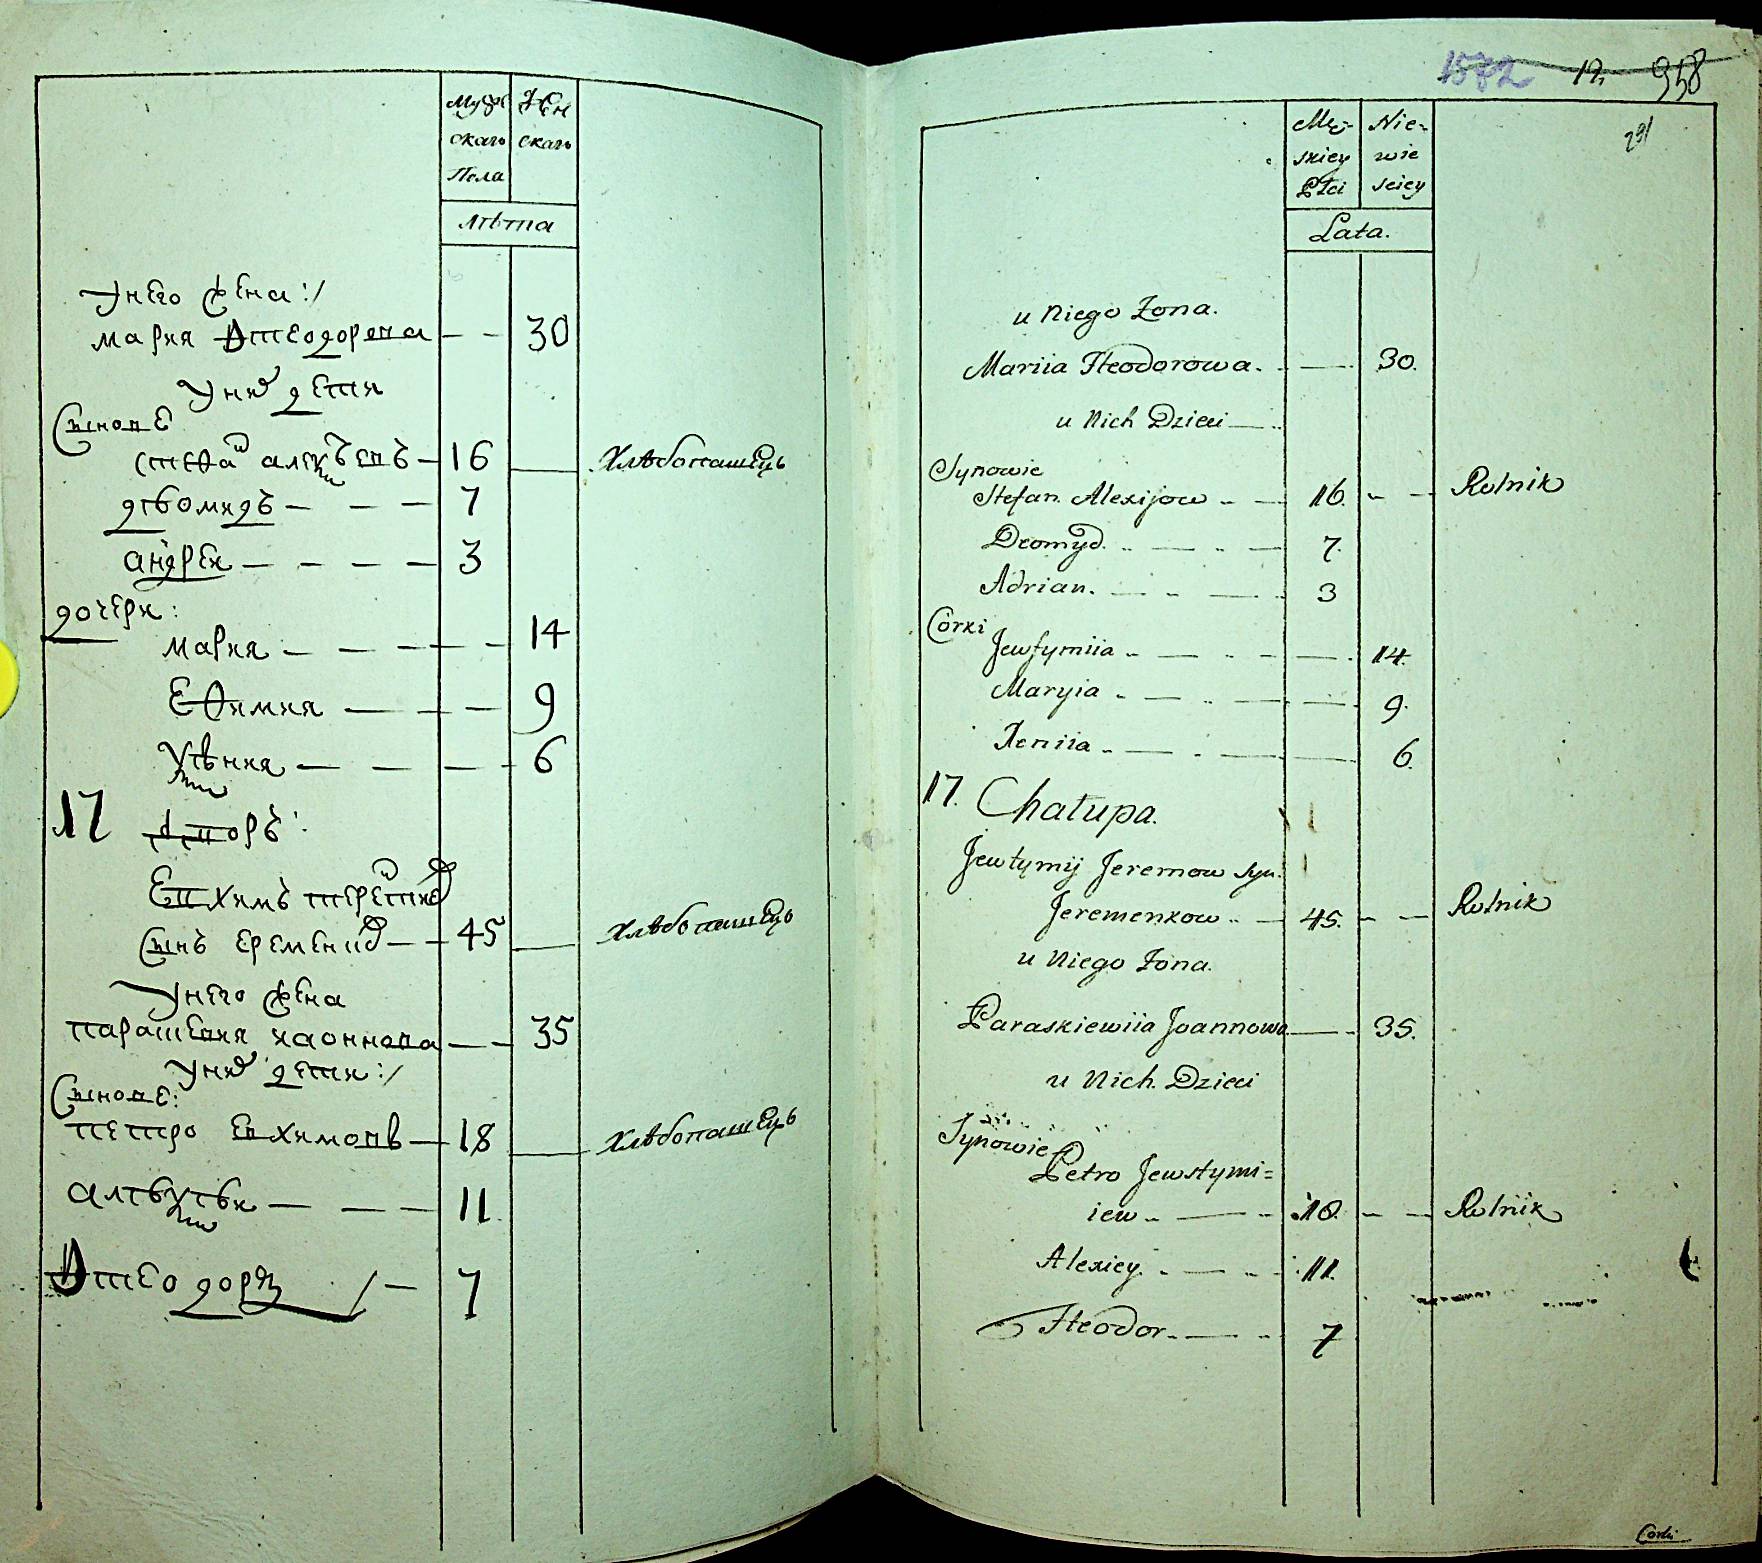 Мужескаго Пола
Женскаго
Лѣта
Унего жена:/
мария Ѳтеодорова — — 30
Унихъ дети
Сынове
стефанъ — 16 — Хлѣбопашецъ
— — — 7
андрей — — — — 3
дочери:
мария — — — — — 14
Ефимия — — — 9
— — — — 6
17 дворъ:
Евхимъ
Сынъ — — 45 — хлѣбопашецъ
Унего жена
парашевия иаоннова — — 35
Унихъ дети:/
Сынове:
петро Евхимовъ — 18 — Хлѣбопашецъ
— — — 11
Ѳтеодоръ /— 7
1572 12 958
291
Męskiey Płci
Niewiesciey
Lata.
u Niego Żona.
Mariia Fteodorowa. — 30.
u Nich Dzieci —
Synowie
Stefan Alexijow — 16. — — Rolnik
Deomyd. — — 7.
Adrian. — — 3
Corki
Jewfymiia — — — 14.
Maryia — — — 9.
Xeniia — — — 6.
17. Chałupa.
Jewtymij Jeremow syn.
Jeremenkow — 45. — — Rolnik
u Niego Żona.
Paraskiewiia Joannowa — 35.
u Nich Dzieci
Synowie
Petro Jewstymi=
iew — — 18. — — Rolnik
Alexiey — — 11.
Fteodor. — — 7
Corki